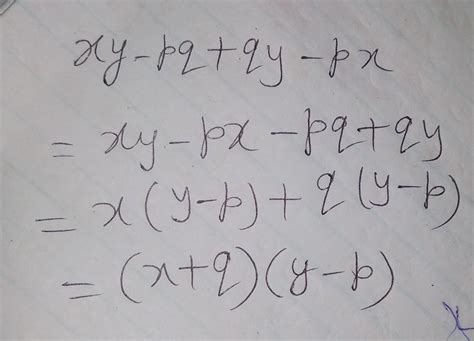 xy-pq+qy-px
= xy-px-pq+qy
= x(y-p)+q(y-p)
= (x+q)(y-p)